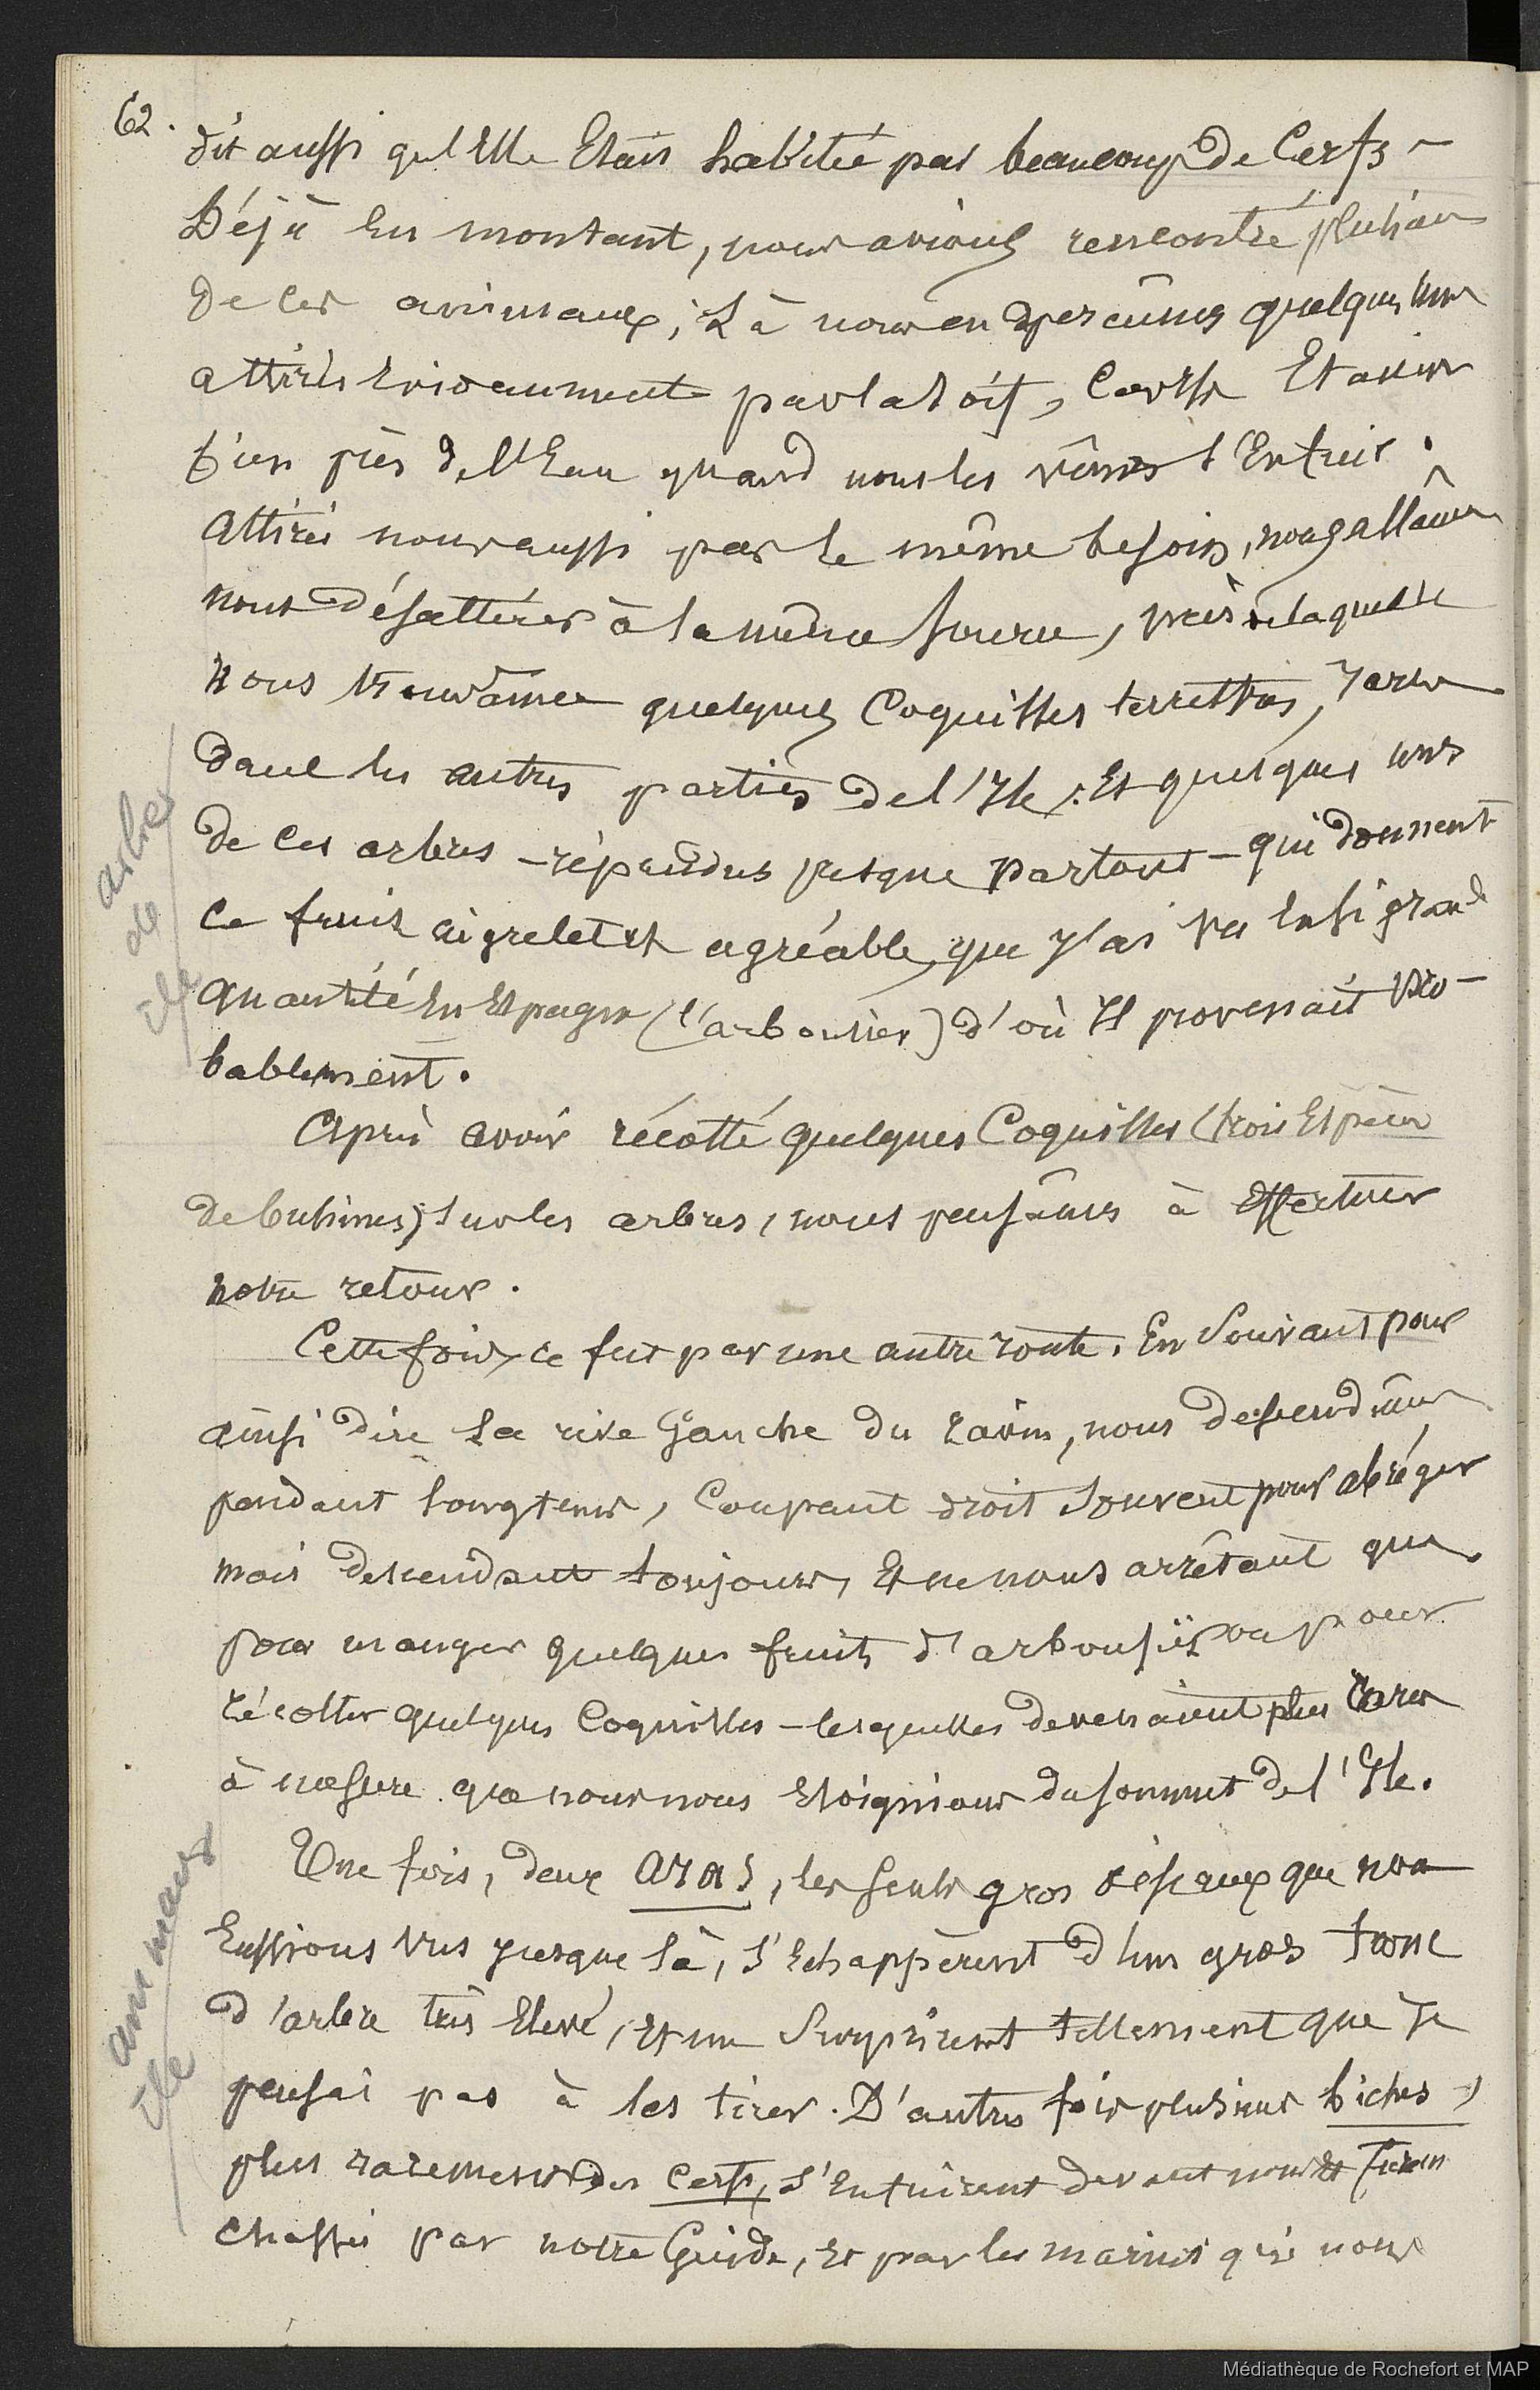 62.
dit aussi qu'Elle Etait habitée par beaucoup de Cerfs -
Déjà En montant, nous avions rencontré plusieurs
de ces animaux; Là nous en aperçûmes quelques uns
attirés Evidemment par la soif, Car ils Etaient
bien près de l'Eau quand nous les vîmes s'Enfuir.
Attirés nous aussi par le même besoin, nous allâmes
nous désaltérer à la même source, près de laquelle
nous trouvâmes quelques Coquilles terrestres, rares
dans les autres parties de l'Ile. Et quelques uns
de ces arbres - répandus presque partout - qui donnent
ce fruit aigrelet et agréable que j'ai vu En si grande
quantité En Espagne (l'arbousier) d'où Il provenait pro-
bablement.
Après avoir récolté quelques Coquilles (trois Espèces
de bulimes) sur les arbres, nous pensâmes à Effectuer
notre retour.
Cette fois, ce fut par une autre route. En Suivant pour
ainsi dire la rive Gauche du ravin, nous descendîmes
pendant longtems, Coupant droit Souvent pour abréger
mais descendant toujours, Et ne nous arrêtant que
pour manger quelques fruits d'arbousier ou pour
récolter quelques Coquilles - lesquelles devenaient plus rares
à mesure que nous nous Eloignions du sommet de l'Ile.
Une fois, deux aras, les seuls gros oiseaux que nous
Eussions vus jusque là, s'Echappèrent d'un gros tronc
d'arbre très Elevé, Et me Surprirent tellement que je
pensai pas à les tirer. D'autres fois plusieurs biches,
plus rarement des Cerfs, s'Enfuirent devant nous Et furent
chassés par notre Guide, Et par les marins qui nous
arbres
de
île
animaux
île
Médiathèque de Rochefort et MAP